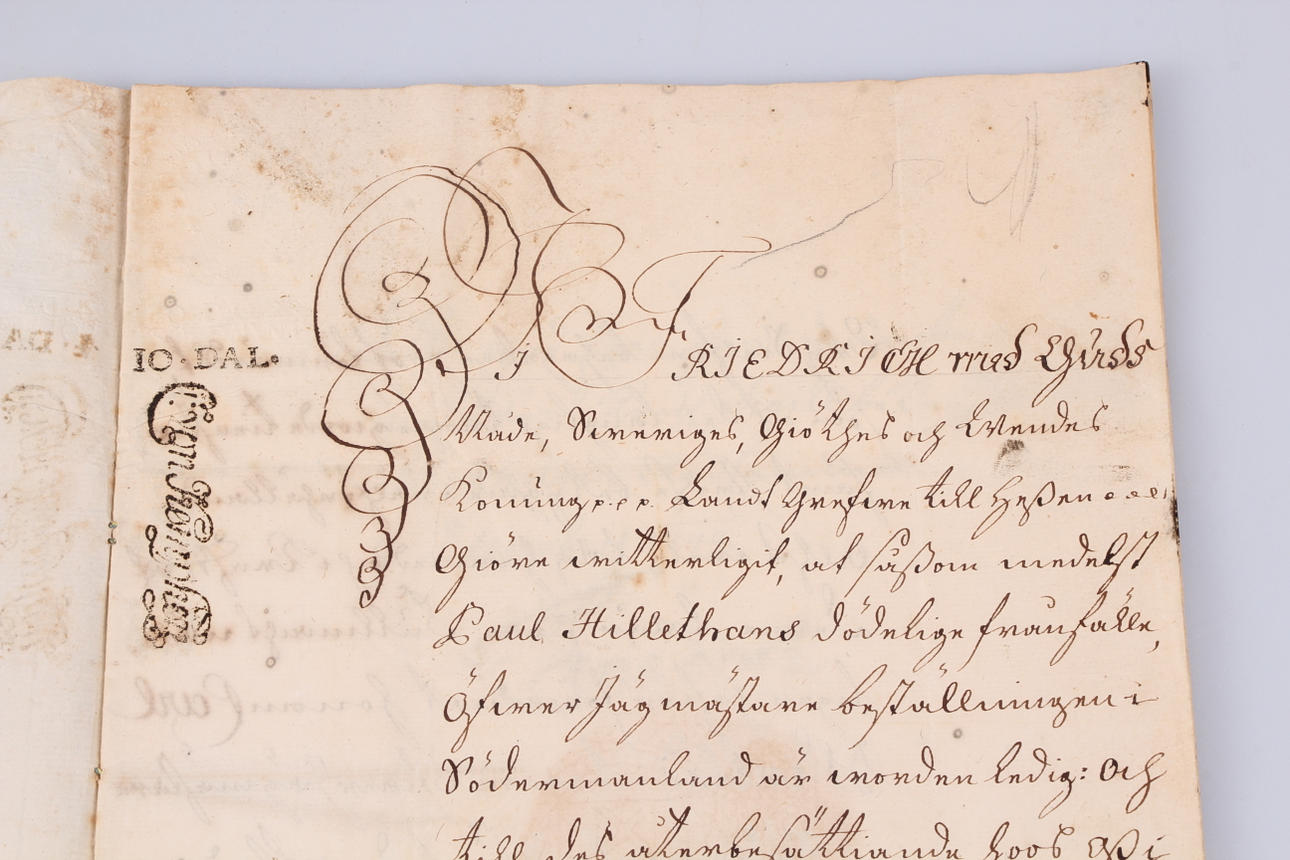 IO·DAL·
Wi FRIEDRICH med Guds
Nåde, Sweriges, Giöthes och Wendes
Konung p.p.p. Landt Grefwe till Heßen
Giöre witterligit, at såßom medelst
Paul Hillethans dödelige frånfälle,
Öfwer Jägmästare beställningen i
Södermanland är worden ledig: Och
till des återbesättiande hoos Oß i